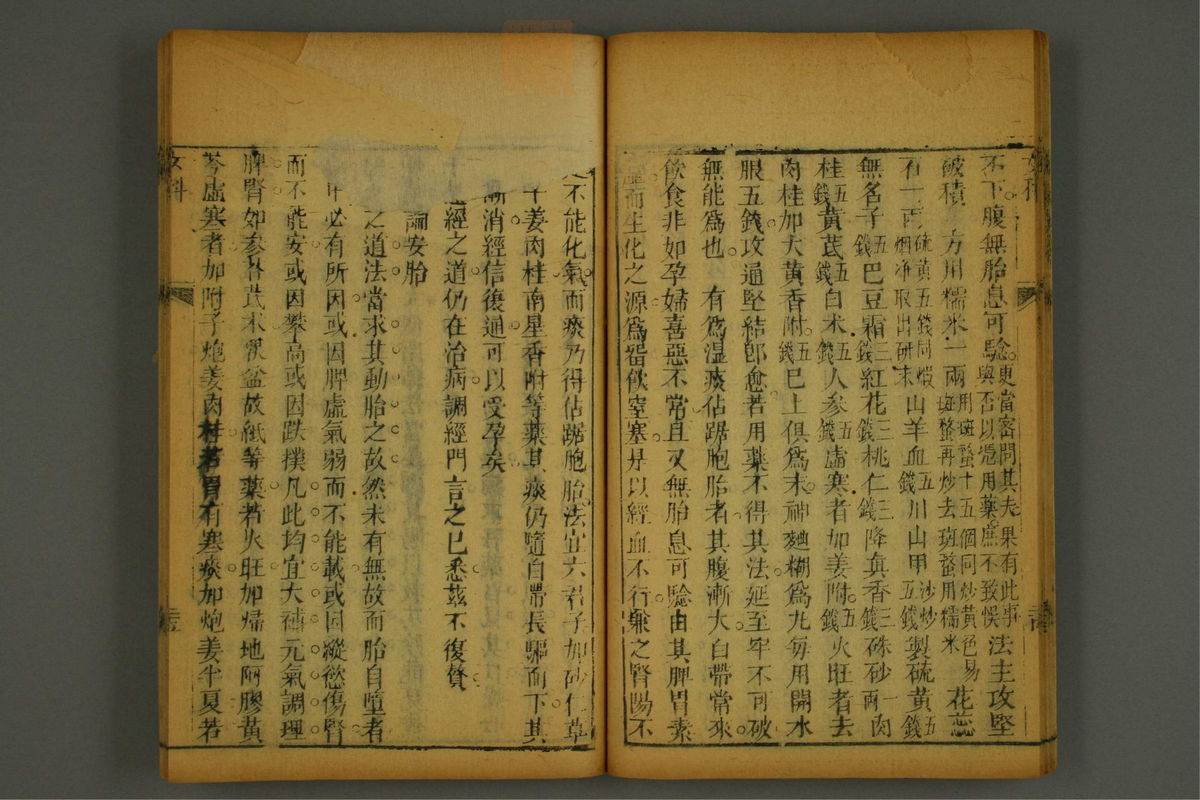 女科
不下腹無胎息可驗更當密問其夫果有此事與否以憑用藥庶不致悞法主攻堅
破積 方用糯米一兩用斑蝥十五個同炒黃色易斑蝥再炒去斑蝥用糯米花蕊
石一兩硫黃五錢同煅烟淨取出研末山羊血五錢川山甲沙炒五錢製硫黃五錢
無名子五錢巴豆霜三錢紅花三錢桃仁三錢降真香三錢硃砂一兩肉
桂五錢黃芪五錢白朮五錢人參五錢虛寒者加姜附五錢火旺者去
肉桂加大黃香附五錢巳上俱為末神麯糊為丸每用開水
服五錢攻通堅結即愈若用藥不得其法延至牢不可破
無能為也 有為濕痰佔踞胞胎者其腹漸大白帶常來
飲食非如孕婦喜惡不常且又無胎息可驗由其脾胃素
虛而生化之源為留飲窒塞是以經血不行兼之腎陽不
不能化氣而痰乃得佔踞胞胎法宜六君子加砂仁草
干姜肉桂南星香附等藥其痰仍隨白帶長驅而下其
漸消經信復通可以受孕矣
經之道仍在治病調經門言之已悉茲不復贅
論安胎
之道法當求其動胎之故然未有無故而胎自墮者
中必有所因或因脾虛氣弱而不能載或因縱慾傷腎
而不能安或因攀高或因跌撲凡此均宜大補元氣調理
脾腎如參芪朮 故紙等藥若火旺加歸地阿膠黃
芩虛寒者加附子炮姜肉桂若胃有寒痰加炮姜半夏若
女科